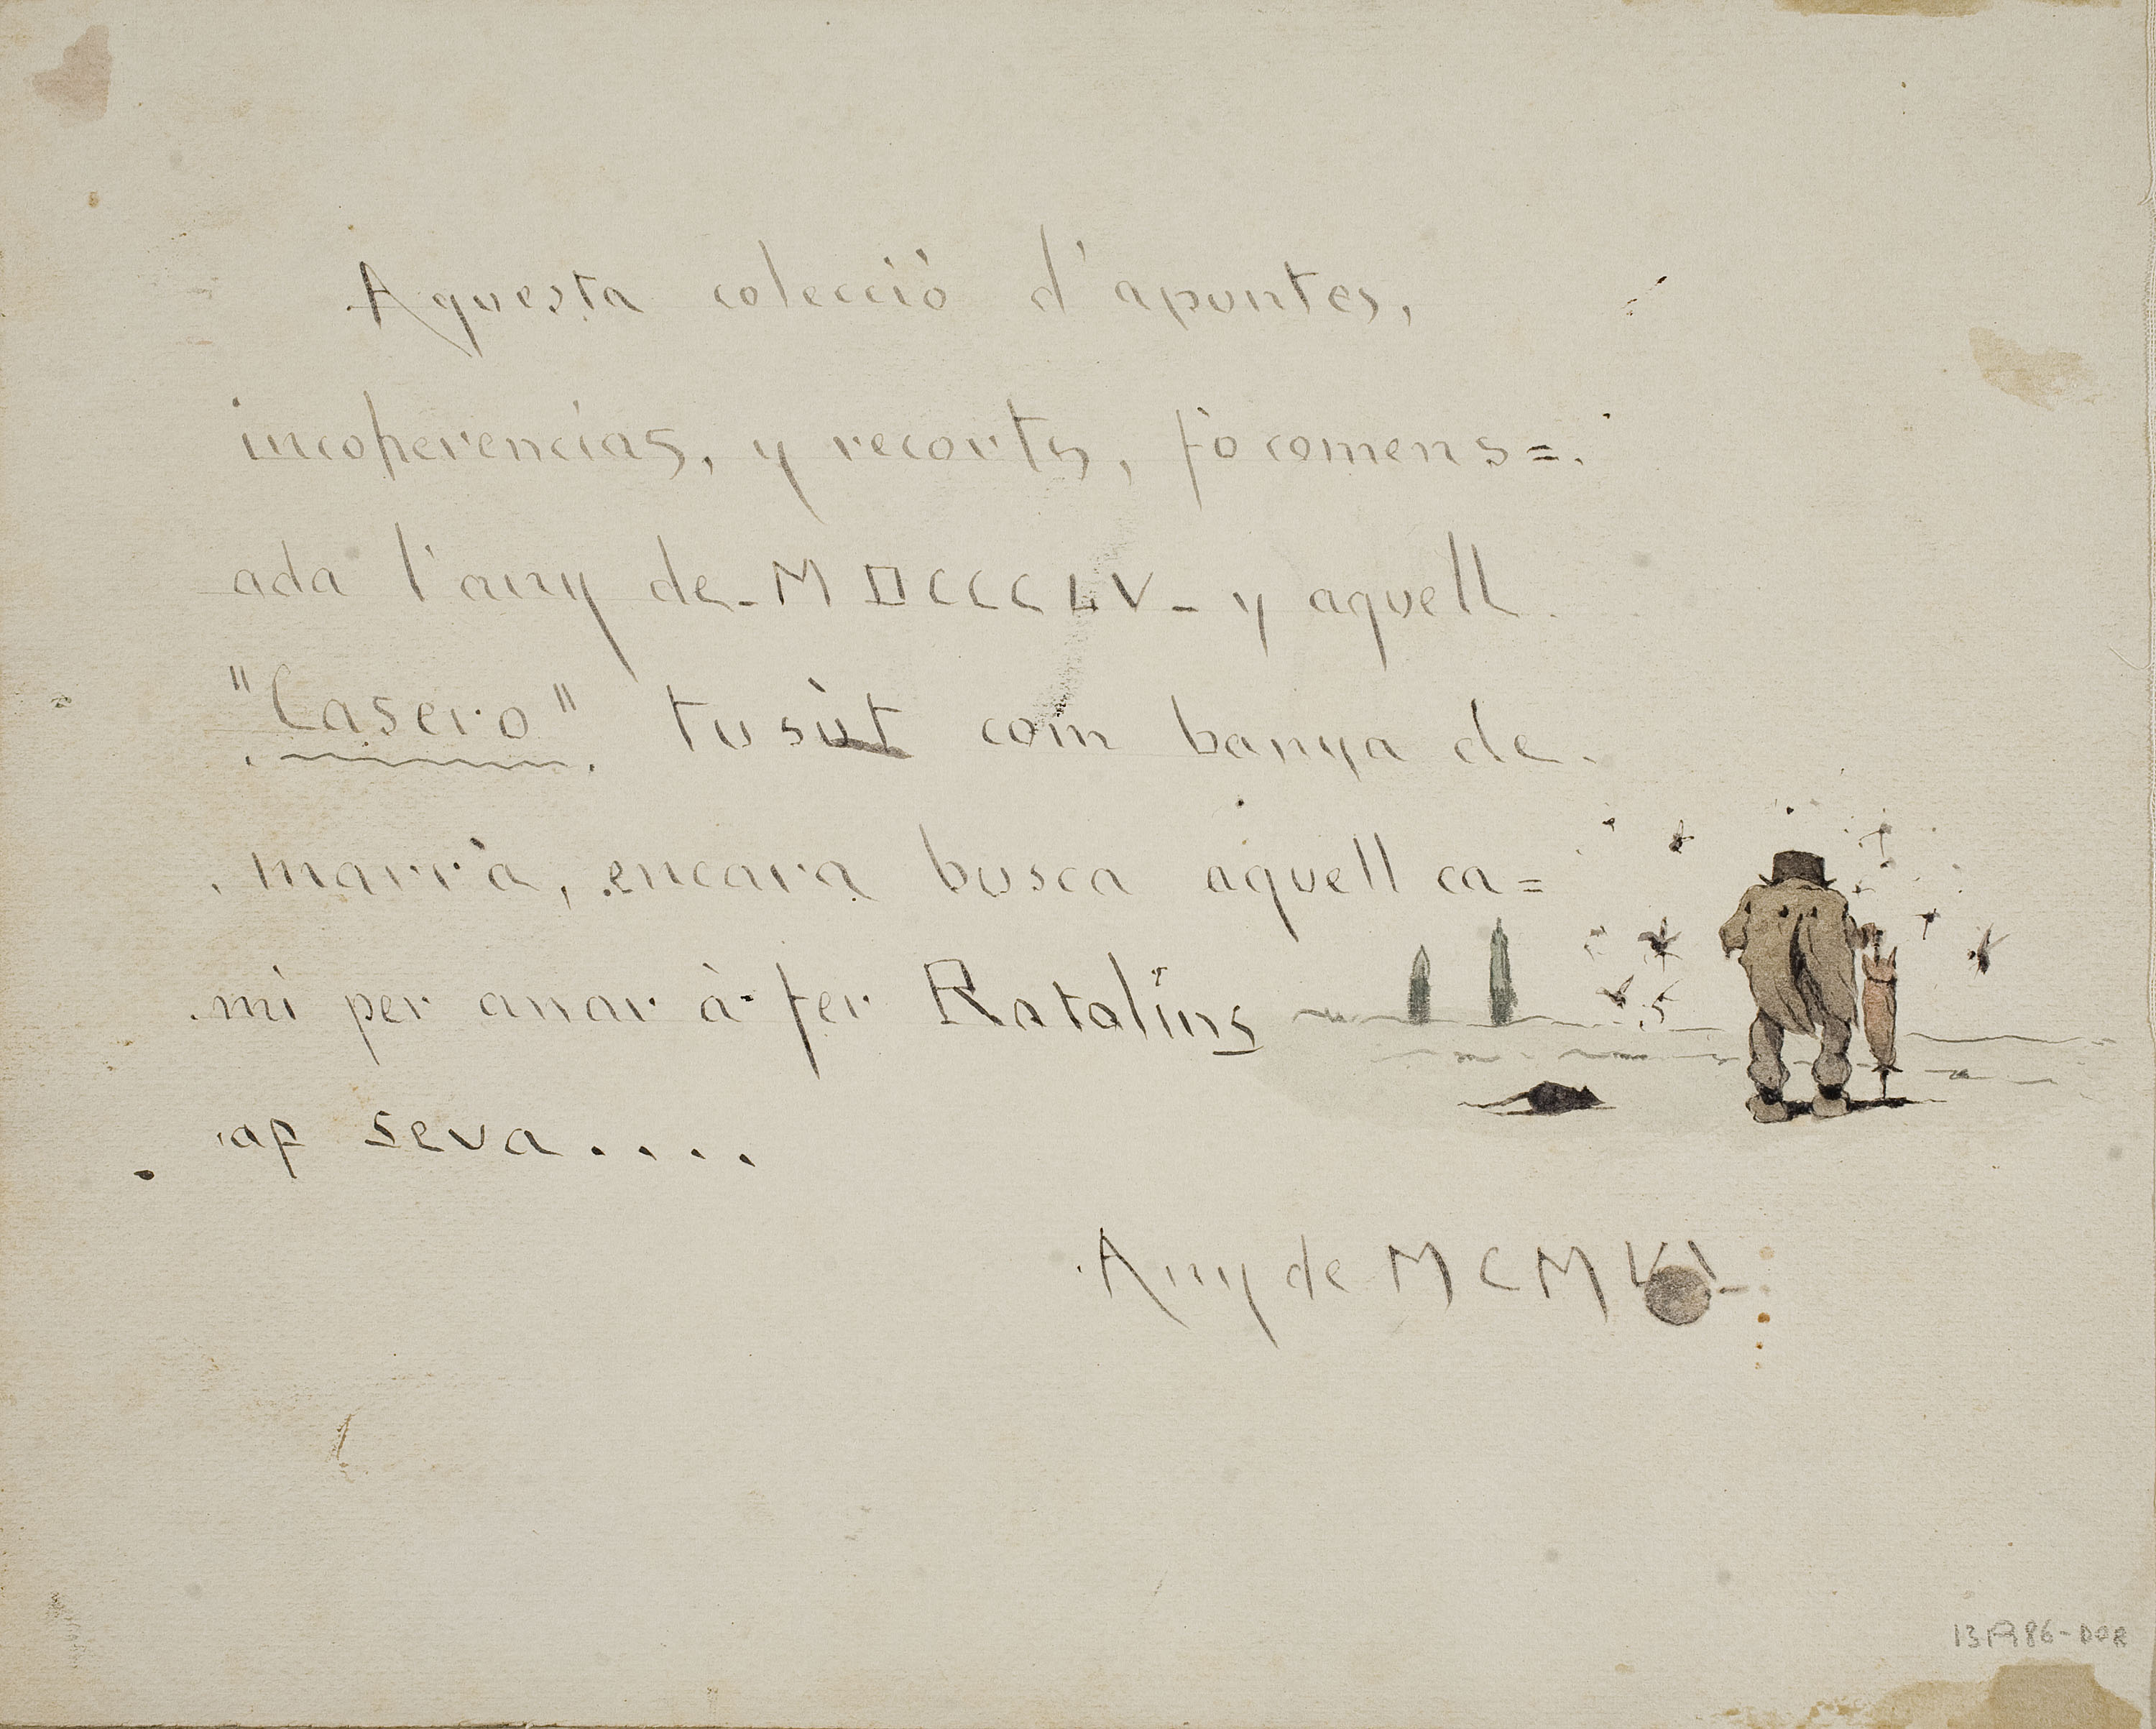 Aquesta colecció d'apuntes,
incoherencias, y recorts, fò comens=
ada l'any de-MDCCCLV- y aquell
"Casero" tusùt com banya de
marrà, encara busca aquell ca=
mi per anar à fer Ratolins
ap seva....
Any de MCMVI-